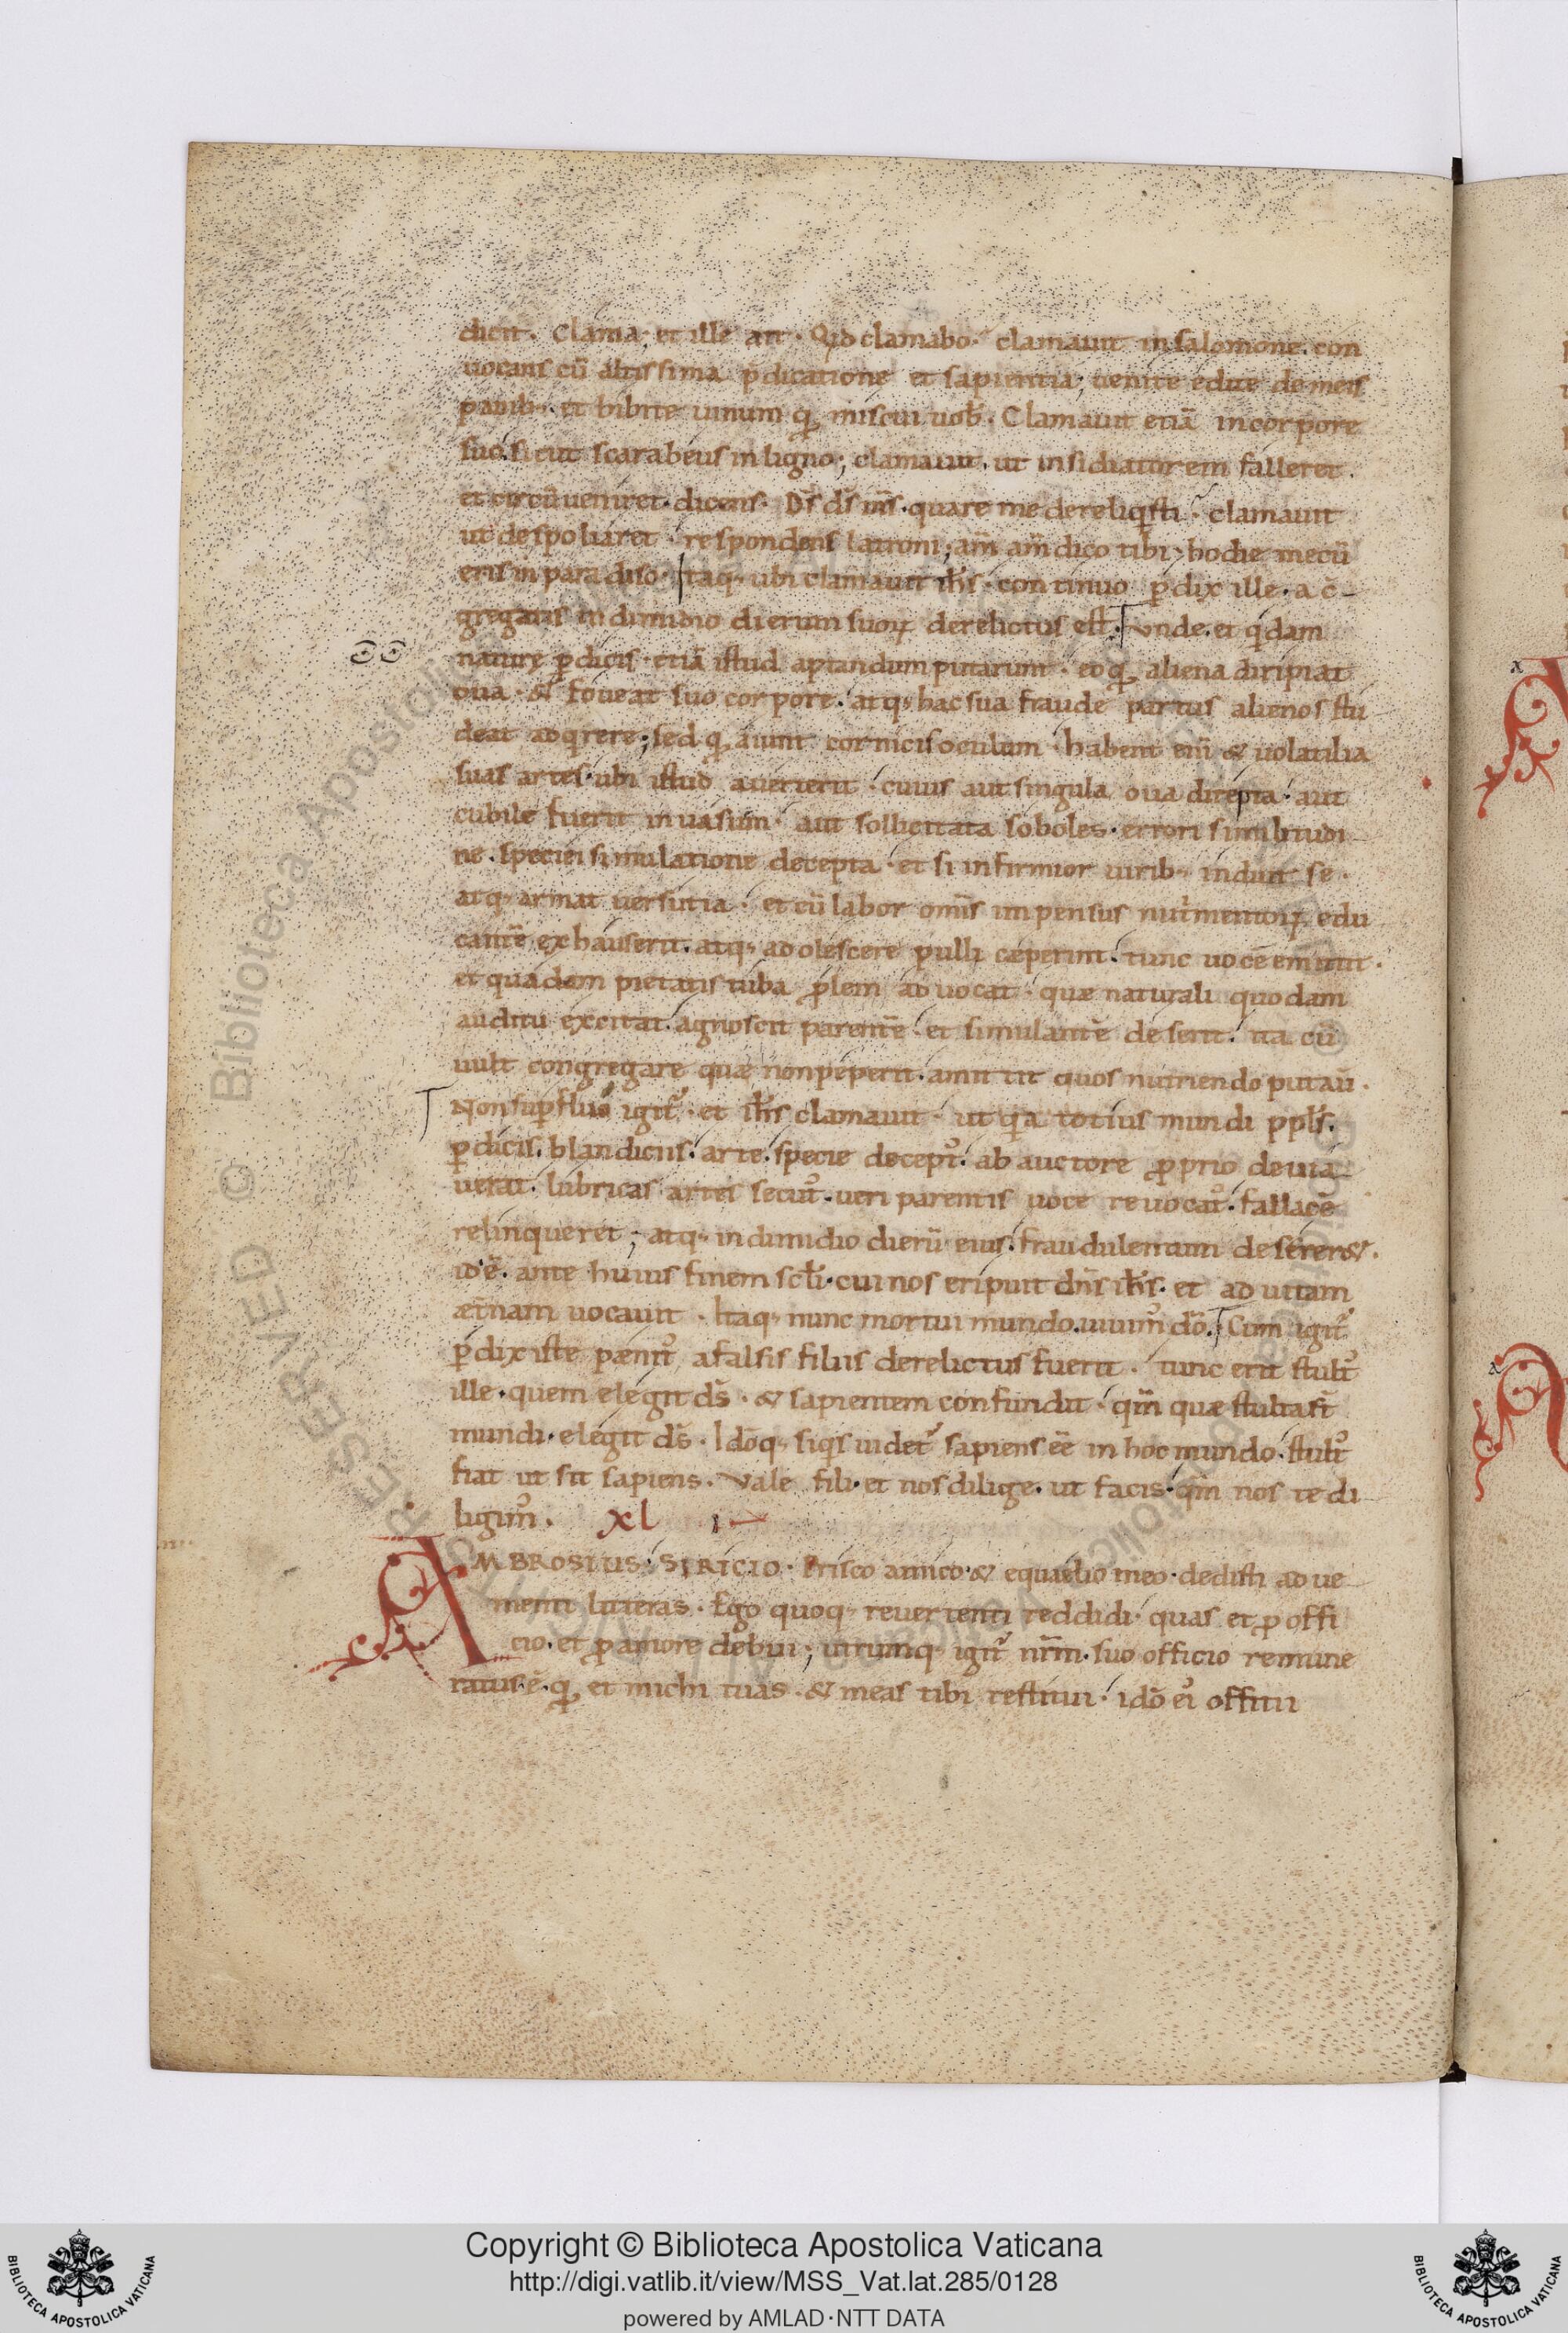 dicit. Clama. et ille ait. Qid clamabo. clamauit in salomone. con
uocans cū altissima p̄dicatione et sapientia; uenite edite de meis
panib; et bibite uinum qđ miscui uob̄. Clamauit etiā in corpore
suo. sicut scarabeus in ligno; clamauit. ut insidiatorem falleret.
et circūueniret. dicens. D̄s d̄s m̄s. quare me dereliqisti. clamauit
ut despoliaret. respondens latroni; am̄ am̄ dico tibi. hodie mecū
eris in paradiso. Itaq; ubi clamauit ih̄s. continuo p̱dix ille. a c̄-
gregatis in dimidio dierum suoꝝ derelictus est. Vnde. et qidam
naturę p̱dicis. etiā istud aptandum putarunt. eo qđ aliena diripiat
oua. & foueat suo corpore. atq; hac sua fraude partus alienos stu
deat adqirere; sed qđ aiunt cornicis oculum. habent eni̅ & uolatilia
suas artes. ubi istud auerterit. cuius aut singula oua direpta. aut
cubile fuerit inuasum. aut sollicitata soboles. errori similitudi-
ne. speciei simulatione decepta. et si infirmior uirib; induit se.
atq; armat uersutia. et cū labor om̄is impensus nutmentoꝝ edu
cantē exhauserit. atq; adolescere pulli cæperint. tunc uocē emittit.
et quadam pietatis tuba p̱lem aduocat. quæ naturali quodam
auditu excitat. agnoscit parentē. et simulantē deserit. ita cū
uult congregare quæ non peperit. amittit quos nutriendo putau̅.
Non sup̱fluo igit̃. et ih̄s clamauit. ut qia totius mundi ppl̄s.
p̱dicis. blandiciis. arte. specie decept᷒. ab auctore p̱prio deuia
uerat. lubricas artes secut᷒. ueri parentis uoce reuocat᷒. fallacē
relinqueret; atq; in dimidio dierū eius. fraudulentum deserer&.
id ē. ante huius finem sc̄li. cui nos eripuit dn̄s ih̄s. et ad uitam
æt̄nam uocauit. Itaq; nunc mortui mundo. uiuim᷒ dō. Cum igit̃
p̱dix iste pænit᷒ a falsis filiis derelictus fuerit. tunc erit stult᷒
ille. quem elegit d̄s. & sapientem confundit. qm̄ quæ stulta st̄
mundi. elegit d̄s. Idoq; siqis uidet̃ sapiens ēē in hoc mundo. stult᷒
fiat ut sit sapiens. Vale fili. et nos dilige. ut facis. qm̄ nos te di-
ligim᷒. xl
AMBROSIUS. SIRICIO. Prisco amico. & equælio meo. dedisti ad me
menti litteras. Ego quoq; reuertenti reddidi. quas et p̱ offi
cio. et p̱ amore debui; utrumq; igit̃ nr̄m. suo officio remune
ratus ē. qđ et michi tuas. & meas tibi restituit. idō ei᷒ offitii
Copyright © Biblioteca Apostolica Vaticana
http://digi.vatlib.it/view/MSS_Vat.lat.285/0128
powered by AMLAD·NTT DATA